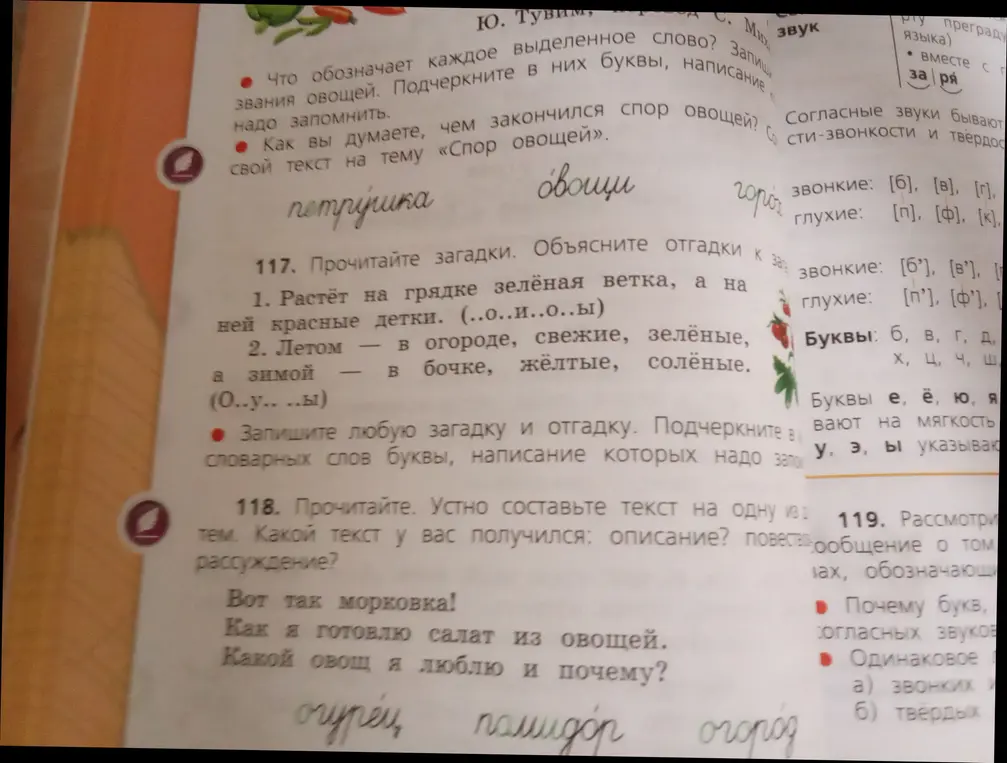 Ю. Тувим,
• Что обозначает каждое выделенное слово?
звания овощей. Подчеркните в них буквы, написание
надо запомнить.
• Как вы думаете, чем закончился спор овощей?
свой текст на тему «Спор овощей».
петру́шка о́вощи
117. Прочитайте загадки. Объясните отгадки к
1. Растёт на грядке зелёная ветка, а на
ней красные детки. (..о..и..о..ы)
2. Летом — в огороде, свежие, зелёные,
а зимой — в бочке, жёлтые, солёные.
(О..у.. ..ы)
• Запишите любую загадку и отгадку. Подчеркните в
словарных слов буквы, написание которых надо
118. Прочитайте. Устно составьте текст на одну из
тем. Какой текст у вас получился: описание?
рассуждение?
Вот так морковка!
Как я готовлю салат из овощей.
Какой овощ я люблю и почему?
огуре́ц помидо́р огоро́д
звук
языка)
• вместе с
за|ря́
Согласные звуки бывают
сти-звонкости и
звонкие: [б], [в], [г],
глухие: [п], [ф], [к],
звонкие: [б’], [в’],
глухие: [п’], [ф’],
Буквы: б, в, г, д,
х, ц, ч, ш
Буквы е, ё, ю, я
вают на мягкость
у, э, ы
119.
о том
• Почему
• Одинаковое
а) звонких
б) твёрдых